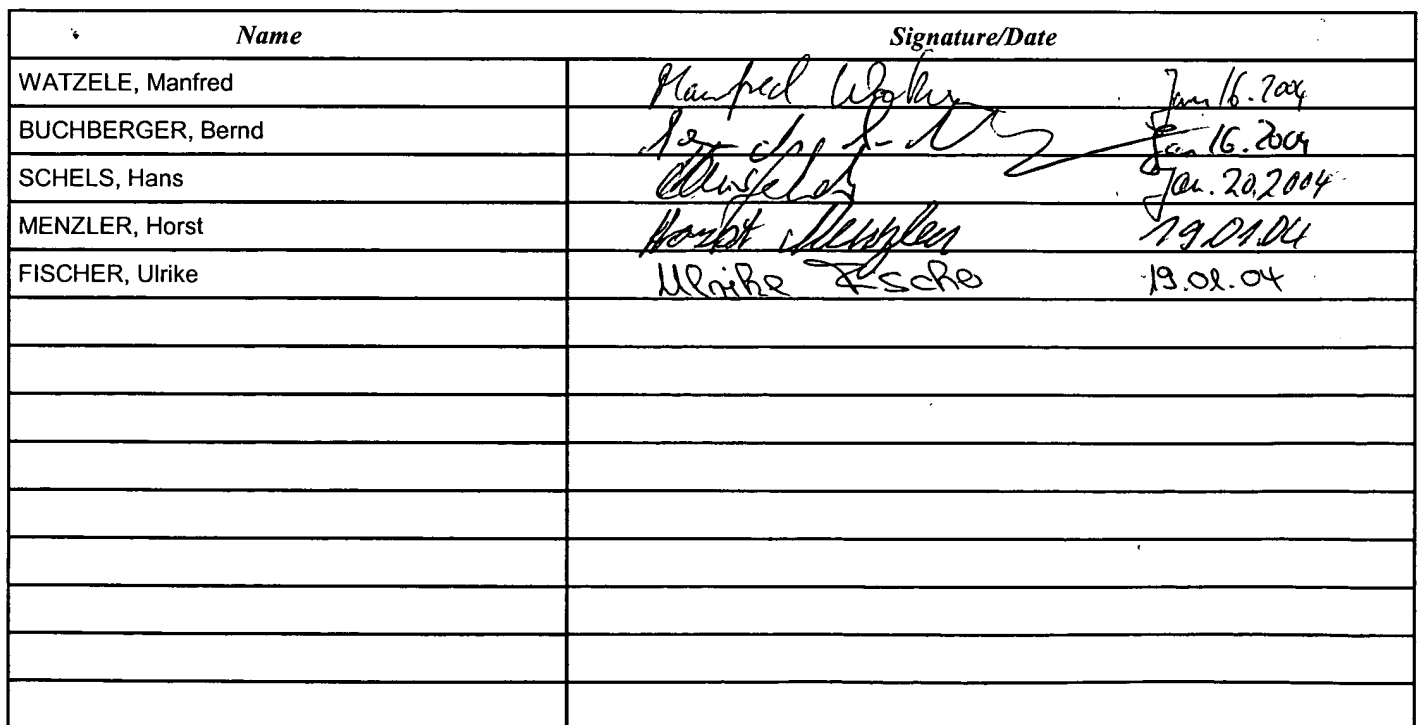 Name Signature/Date
WATZELE, Manfred Manfred Jan 16. 2004
BUCHBERGER, Bernd Jan 16. 2004
SCHELS, Hans Jan. 20. 2004
MENZLER, Horst Horst Menzler 19.01.04
FISCHER, Ulrike Ulrike Fischer 19.01.04